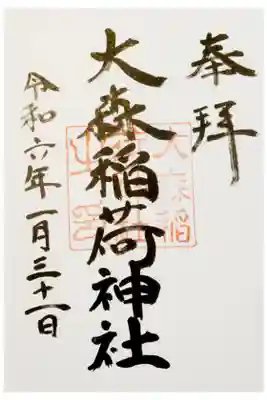 奉拝
大森稲荷神社
令和六年一月三十一日